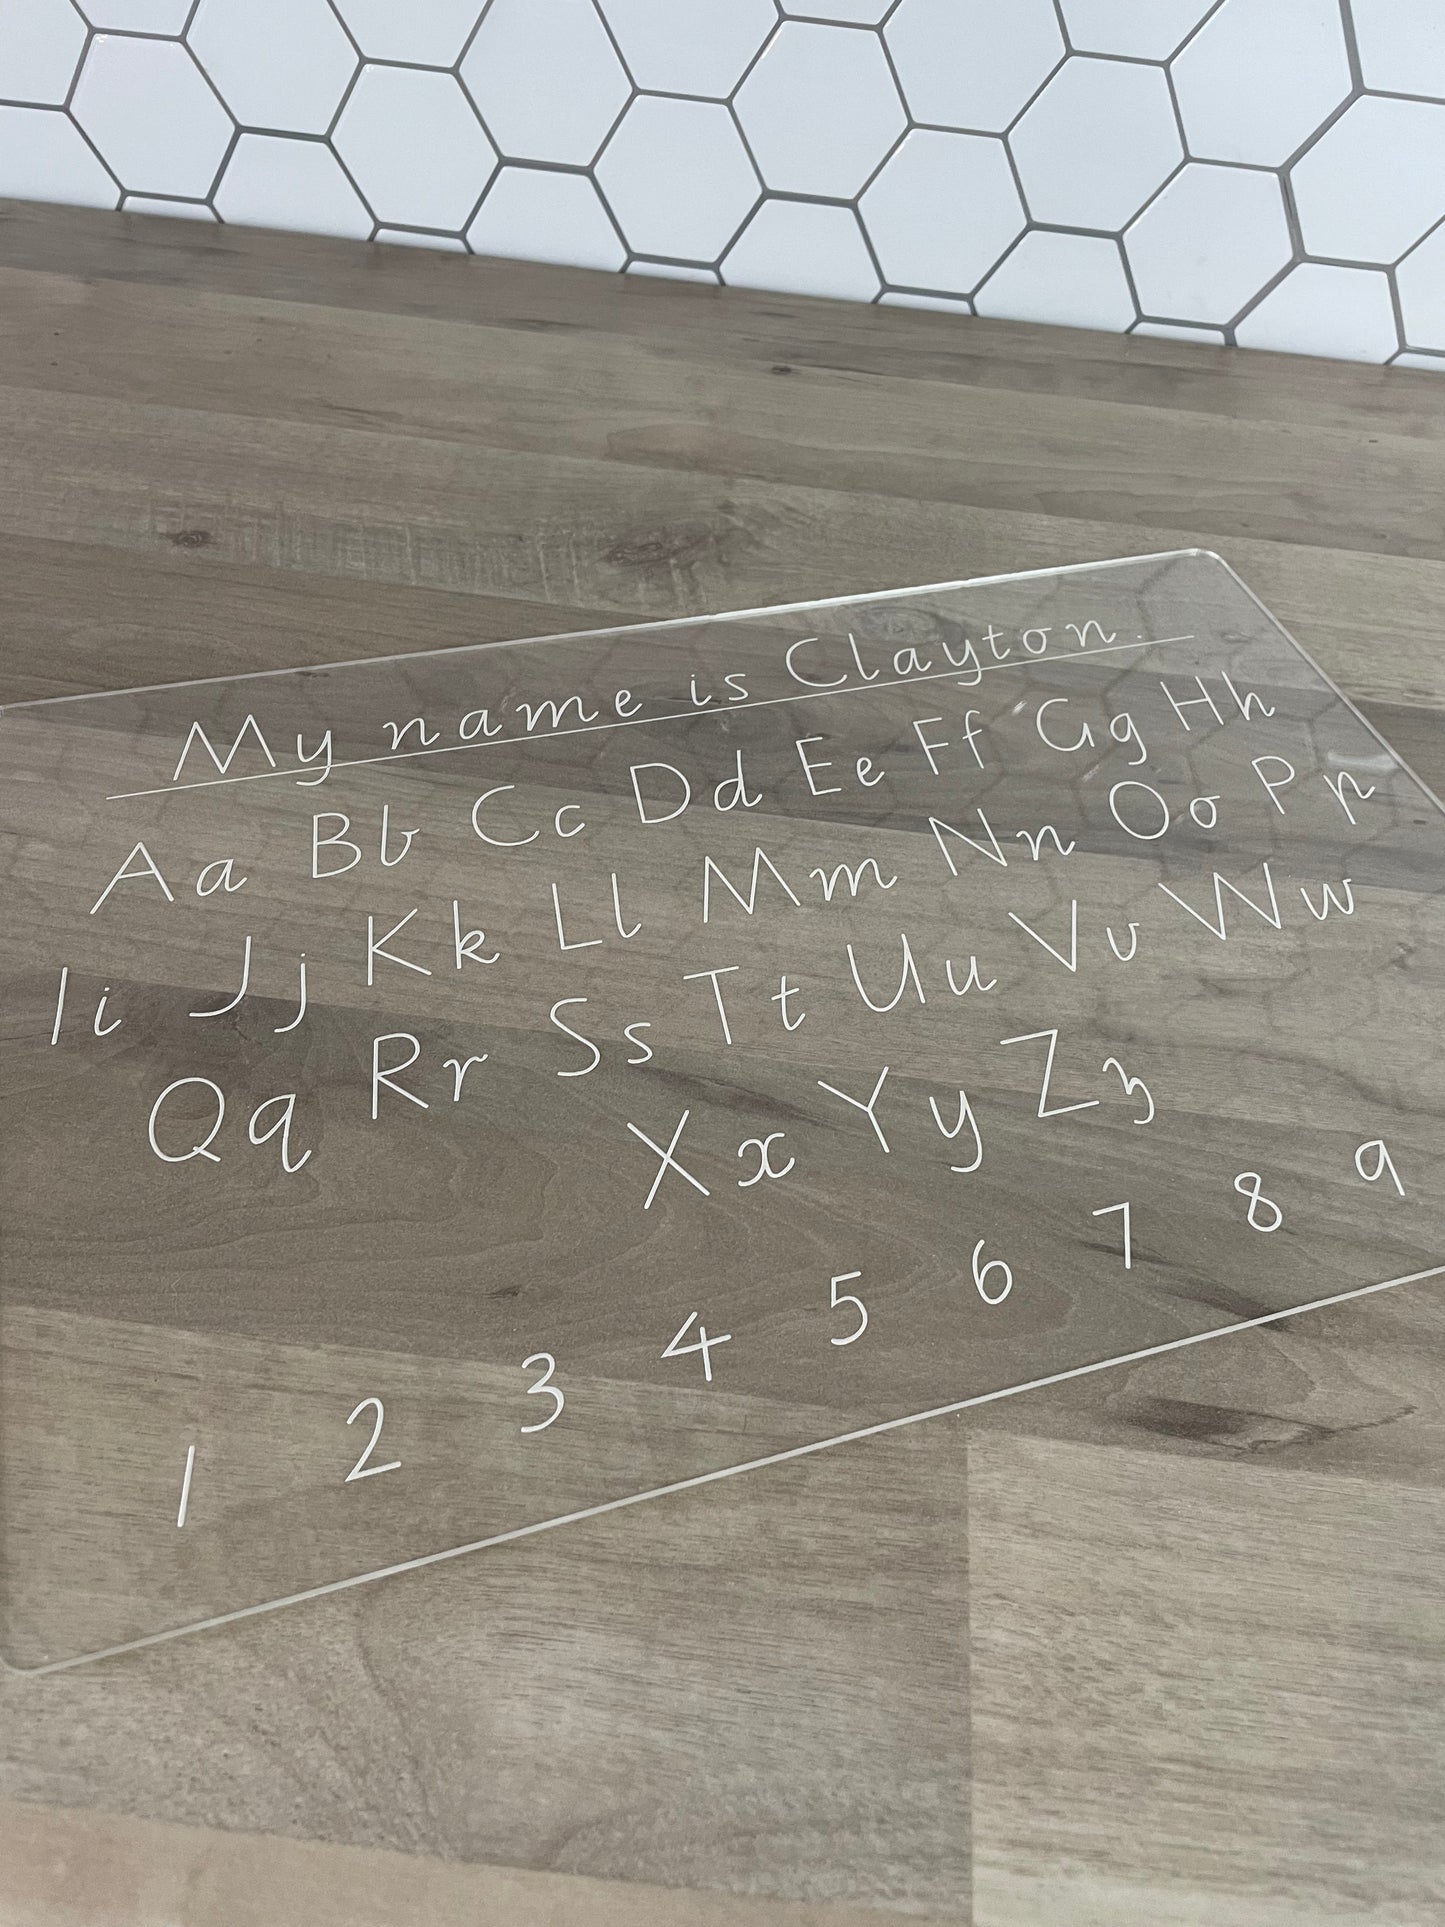 My name is Clayton.
Aa Bb Cc Dd Ee Ff Gg Hh
Ii Jj Kk Ll Mm Nn Oo Pp
Qq Rr Ss Tt Uu Vv Ww
Xx Yy Zz
1 2 3 4 5 6 7 8 9